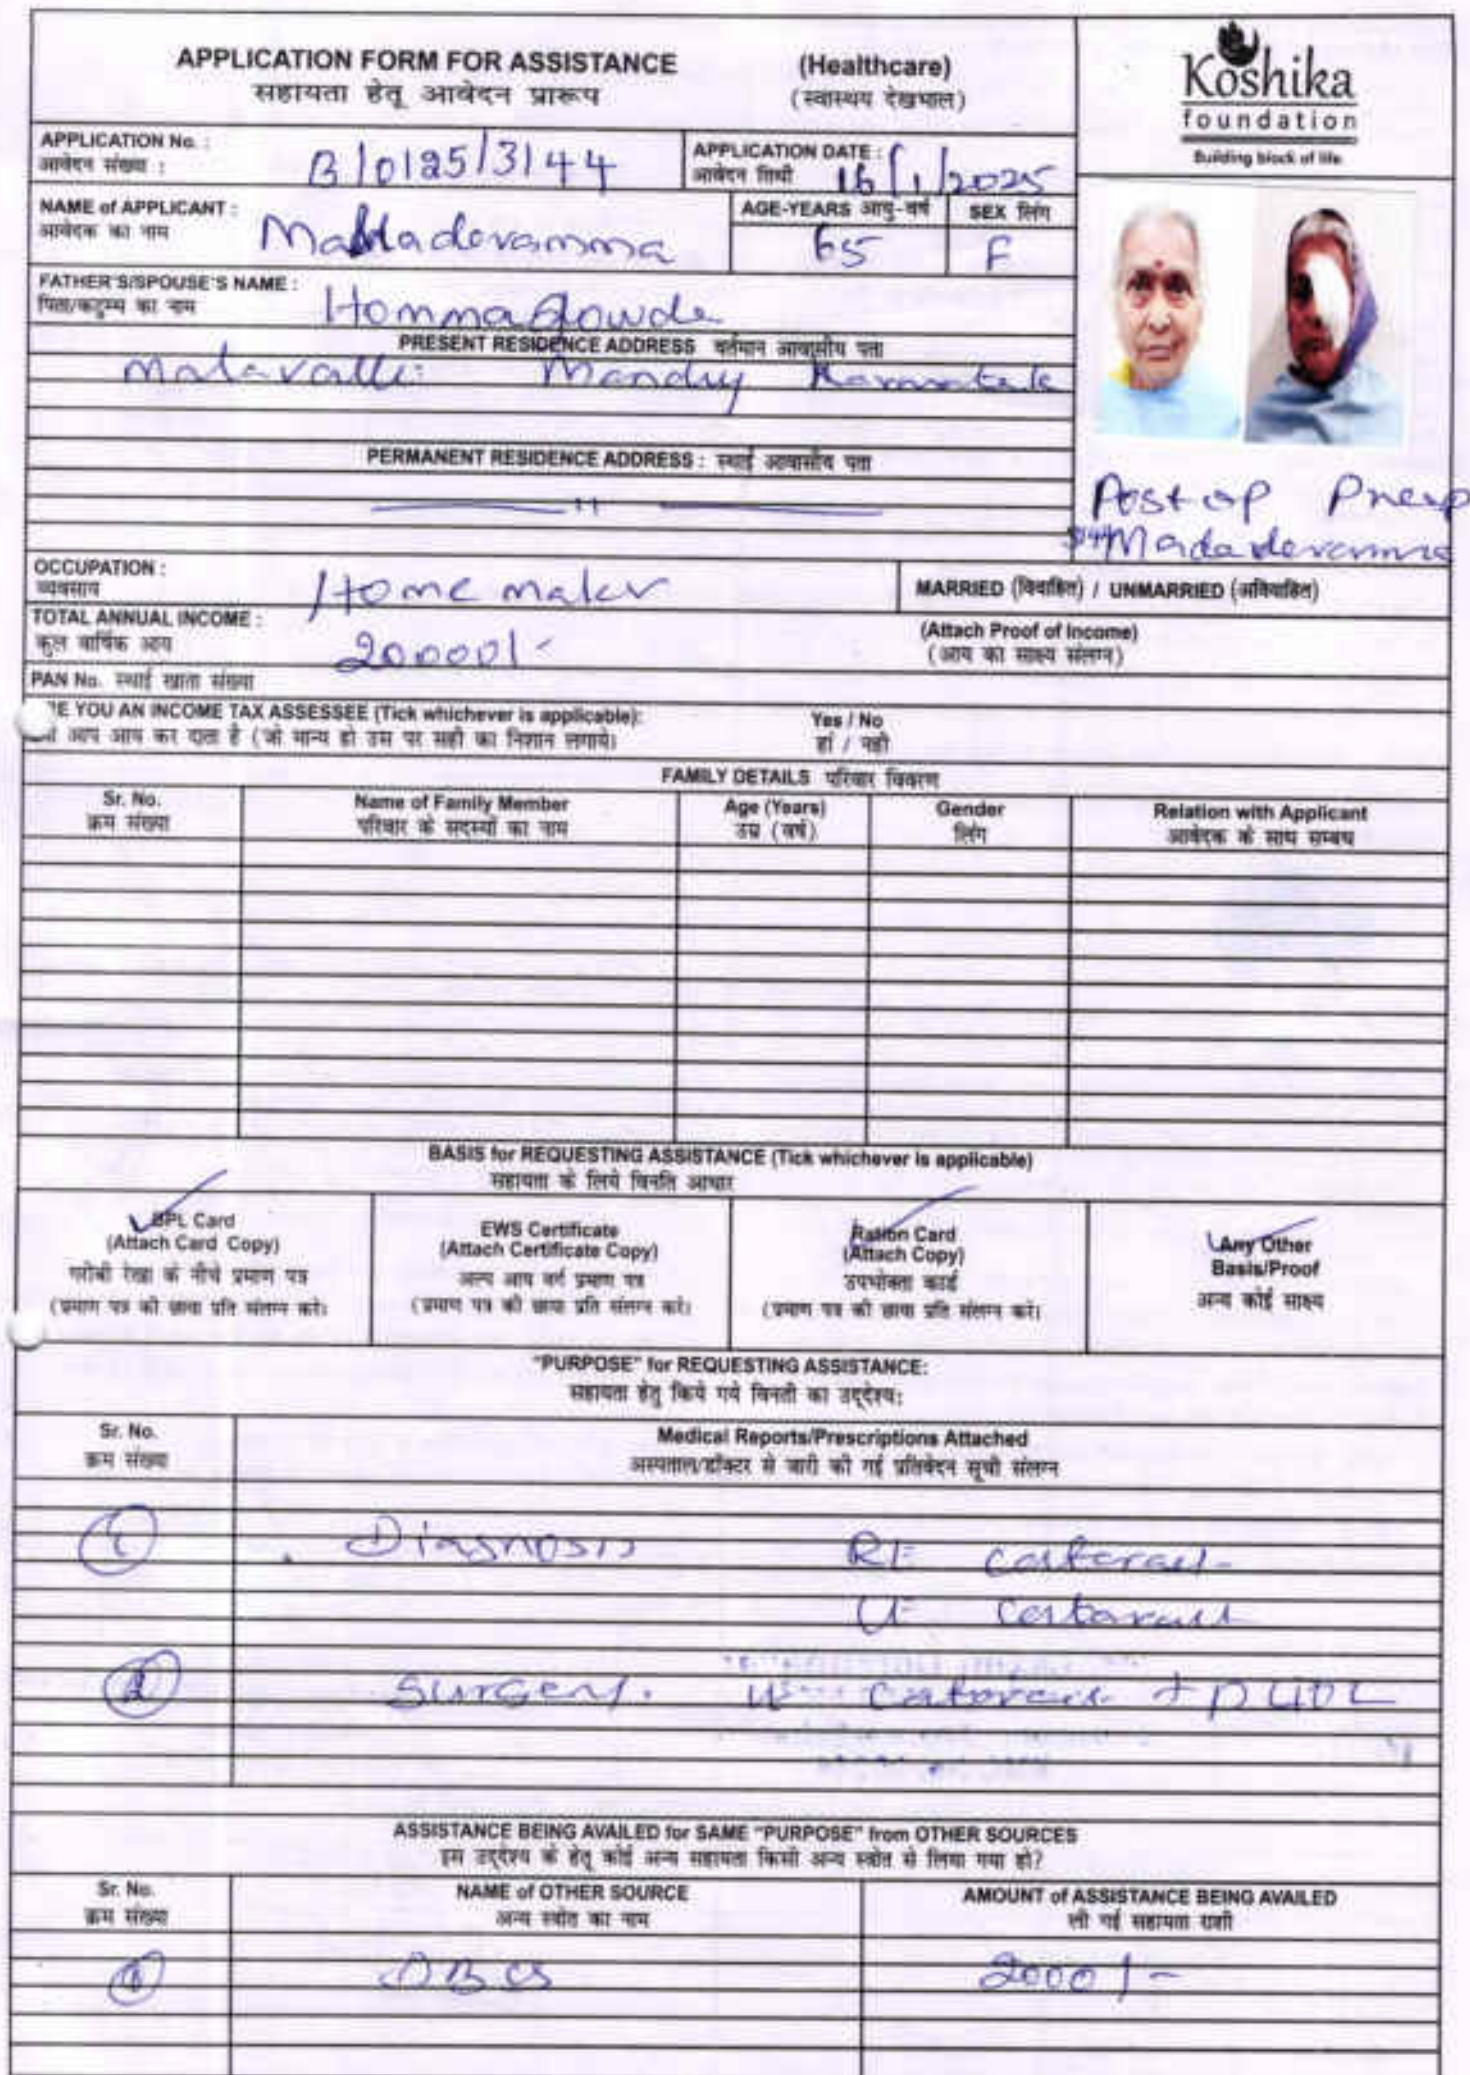 APPLICATION FORM FOR ASSISTANCE (Healthcare)
सहायता हेतू आवेदन प्रारूप (स्वास्थय देखभाल)
Koshika
foundation
Building block of life
APPLICATION No. : B/0125/3144
आवेदन संख्या :
APPLICATION DATE : 16/1/2025
आवेदन तिथी
NAME of APPLICANT :
आवेदक का नाम
AGE-YEARS आयु-वर्ष 65
SEX लिंग F
FATHER'S/SPOUSE'S NAME :
पिता/कटुम्ब का नाम
PRESENT RESIDENCE ADDRESS वर्तमान आवासीय पता
Malavalli Mandya Karnataka
PERMANENT RESIDENCE ADDRESS : स्थाई आवासीय पता
— 11 —
Post op Preop
OCCUPATION : Home maker
व्यवसाय
MARRIED (विवाहित) / UNMARRIED (अविवाहित)
TOTAL ANNUAL INCOME : 20000/-
कुल वार्षिक आय
(Attach Proof of Income)
(आय का साक्ष्य संलग्न)
PAN No. स्थाई खाता संख्या
E YOU AN INCOME TAX ASSESSEE (Tick whichever is applicable): Yes / No
आप आय कर दाता है (जो मान्य हो उस पर सही का निशान लगाये) हां / नही
FAMILY DETAILS परिवार विवरण
Sr. No. Name of Family Member Age (Years) Gender Relation with Applicant
क्रम संख्या परिवार के सदस्यों का नाम उम्र (वर्ष) लिंग आवेदक के साथ सम्बध
BASIS for REQUESTING ASSISTANCE (Tick whichever is applicable)
सहायता के लिये विनति आधार
BPL Card
(Attach Card Copy)
गरीबी रेखा के नीचे प्रमाण पत्र
(प्रमाण पत्र की छाया प्रति संलग्न करे)
EWS Certificate
(Attach Certificate Copy)
अल्प आय वर्ग प्रमाण पत्र
(प्रमाण पत्र की छाया प्रति संलग्न करे)
Ration Card
(Attach Copy)
उपभोक्ता कार्ड
(प्रमाण पत्र की छाया प्रति संलग्न करे)
Any Other
Basis/Proof
अन्य कोई साक्ष्य
"PURPOSE" for REQUESTING ASSISTANCE:
सहायता हेतु किये गये विनती का उद्देश्य:
Sr. No. Medical Reports/Prescriptions Attached
क्रम संख्या अस्पताल/डॉक्टर से जारी की गई प्रतिवेदन सूची संलग्न
1 Diagnosis RE cataract
LE cataract
2 Surgery. cataract +
ASSISTANCE BEING AVAILED for SAME "PURPOSE" from OTHER SOURCES
इस उद्देश्य के हेतू कोई अन्य सहायता किसी अन्य स्त्रोत से लिया गया हो?
Sr. No. NAME of OTHER SOURCE AMOUNT of ASSISTANCE BEING AVAILED
क्रम संख्या अन्य स्त्रोत का नाम ली गई सहायता राशी
1 DBCS 2000/-